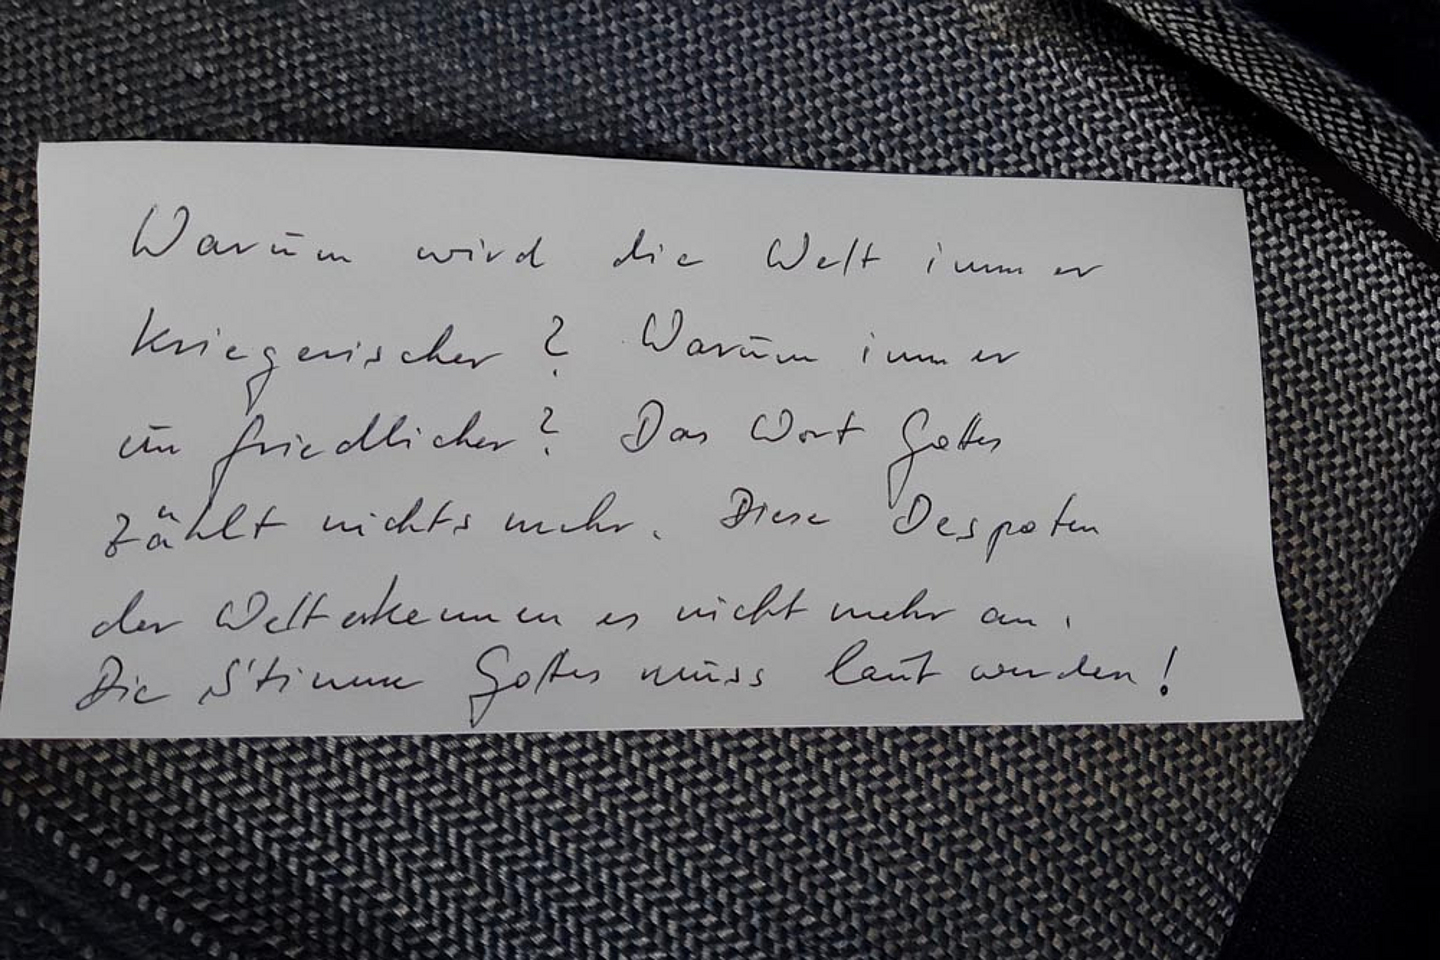 Warum wird die Welt immer
kriegerischer? Warum immer
unfriedlicher? Das Wort Gottes
zählt nichts mehr. Diese Despoten
der Welt erkennen es nicht mehr an.
Die Stimme Gottes muss laut werden!